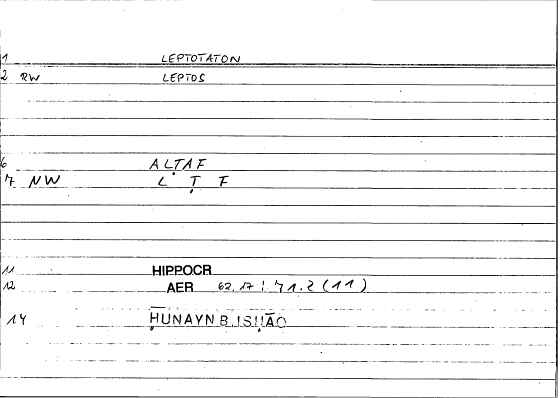 1 LEPTOTATON
2 RW LEPTOS
6 ALṬAF
7 NW L Ṭ F
11 HIPPOCR
12 AER 62,17 : 71.2 (11)
14 ḤUNAYN B.ISḤĀQ